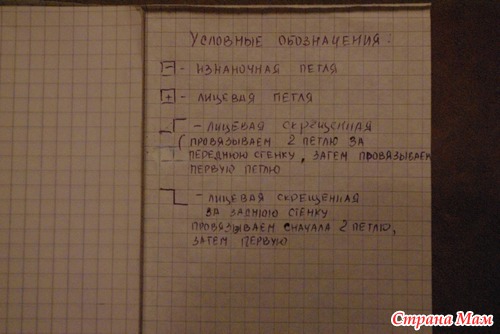 УСЛОВНЫЕ ОБОЗНАЧЕНИЯ:
- - ИЗНАНОЧНАЯ ПЕТЛЯ
+ - ЛИЦЕВАЯ ПЕТЛЯ
- ЛИЦЕВАЯ СКРЕЩЕННАЯ
(ПРОВЯЗЫВАЕМ 2 ПЕТЛЮ ЗА
ПЕРЕДНЮЮ СТЕНКУ, ЗАТЕМ ПРОВЯЗЫВАЕМ
ПЕРВУЮ ПЕТЛЮ
- ЛИЦЕВАЯ СКРЕЩЕННАЯ
ЗА ЗАДНЮЮ СТЕНКУ
ПРОВЯЗЫВАЕМ СНАЧАЛА 2 ПЕТЛЮ,
ЗАТЕМ ПЕРВУЮ
Страна Мам